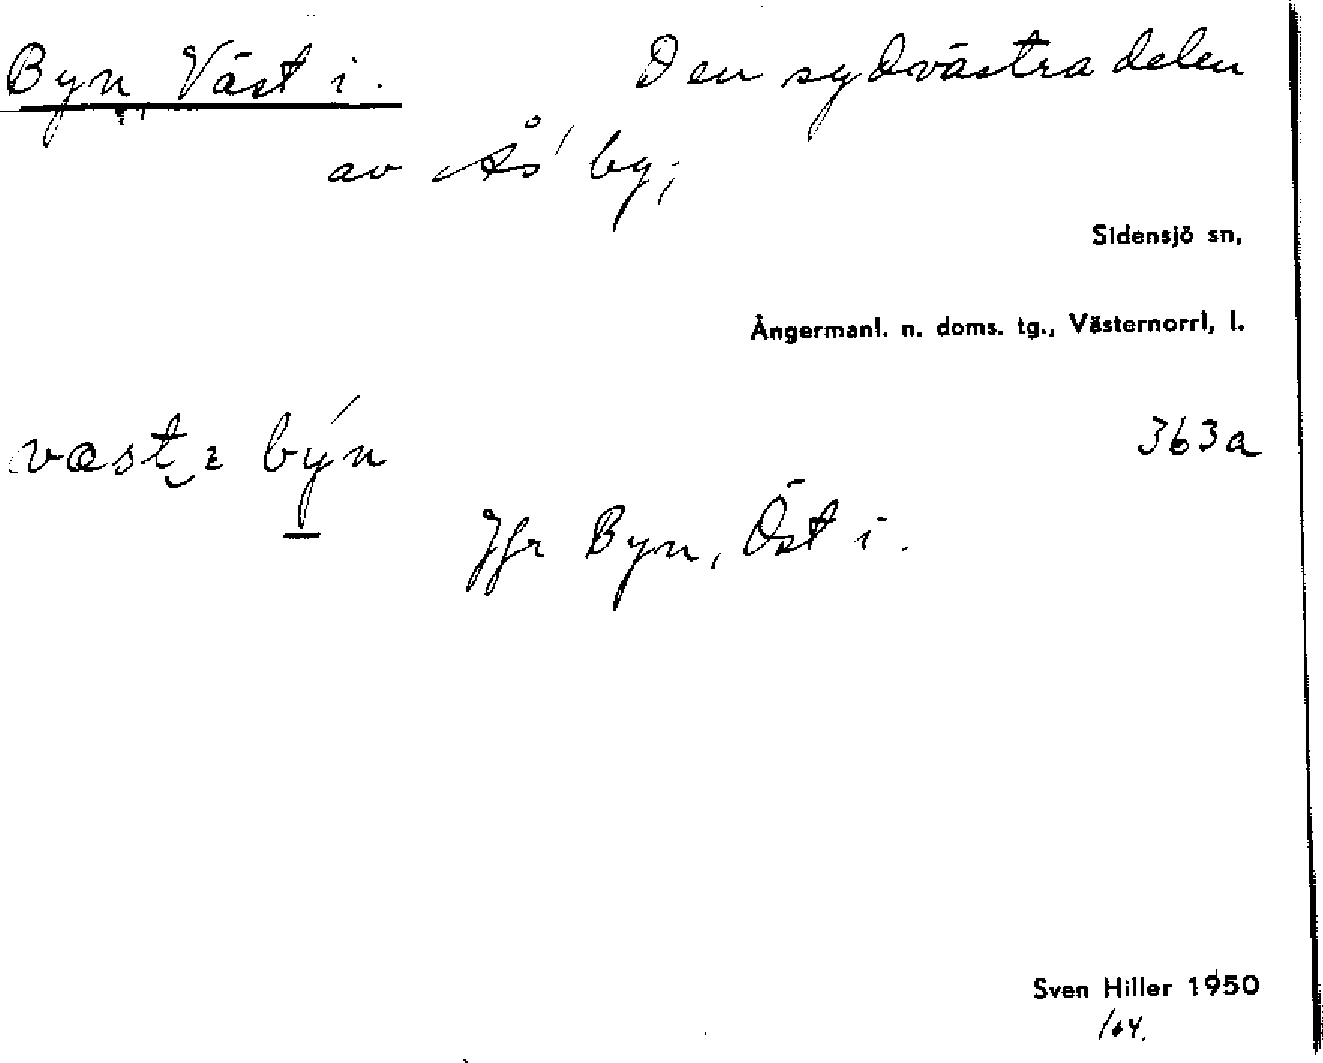 Byn, Väst i. Den sydvästra delen
av Ås' by;
Sidensjö sn,
Ångermanl. n. doms. tg., Västernorrl, l.
363a
væst ɪ býn
Jfr Byn, Öst i.
Sven Hiller 1950